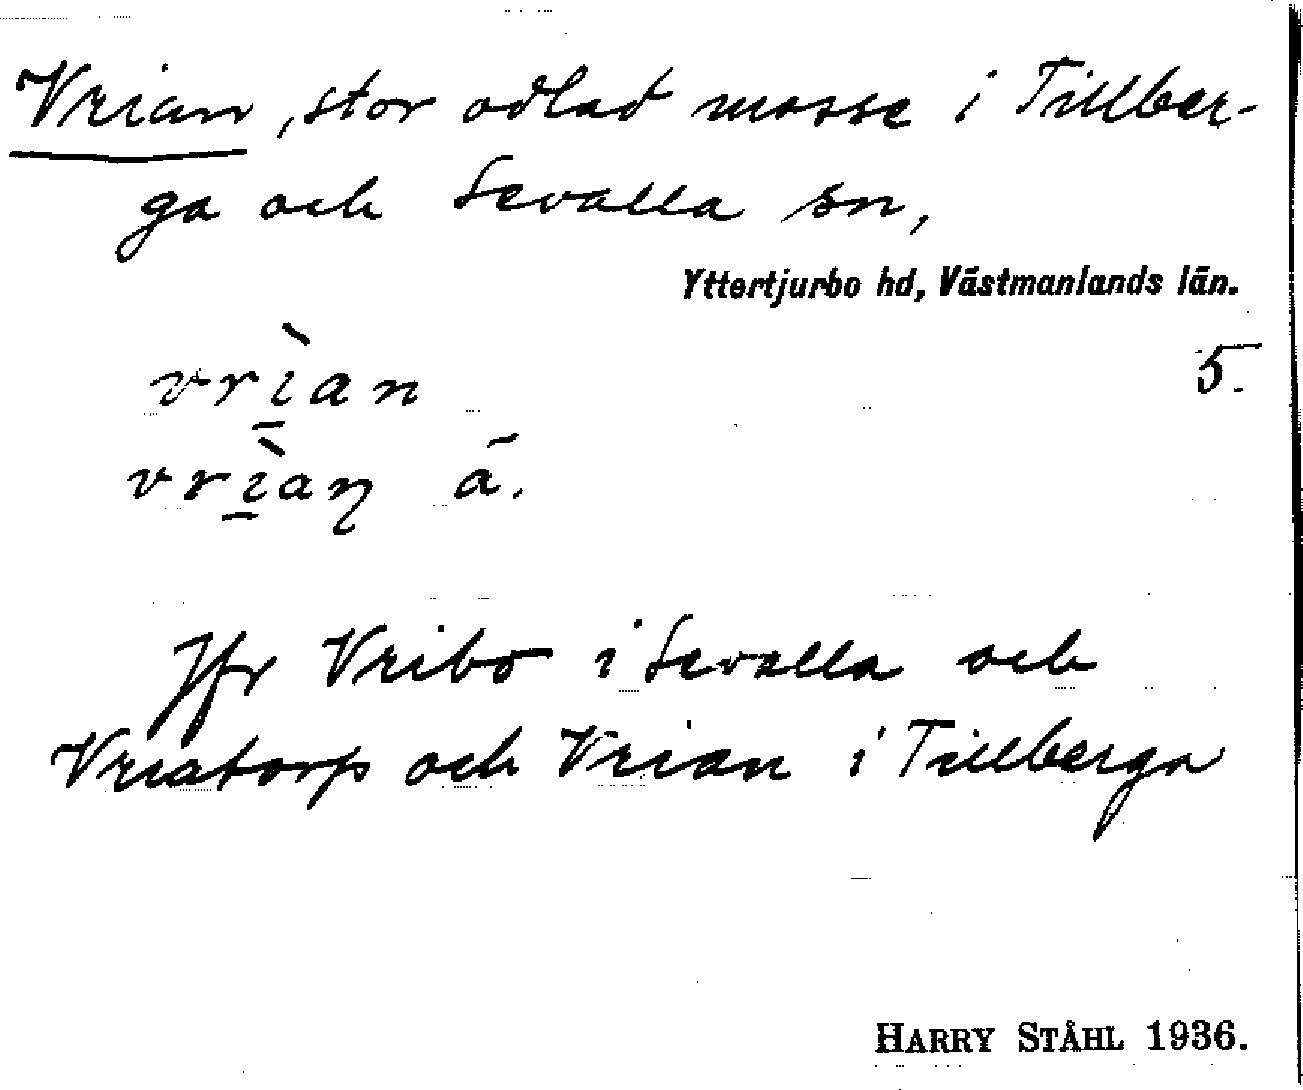 Vrian, stor odlad mosse i Tillber-
ga och Sevalla sn,
Yttertjurbo hd, Västmanlands län.
vrı̱̀an
5.
vrı̱̀aŋ á.
Jfr Vribo i Sevalla och
Vriatorp och Vrian i Tillberga
HARRY STÅHL 1936.